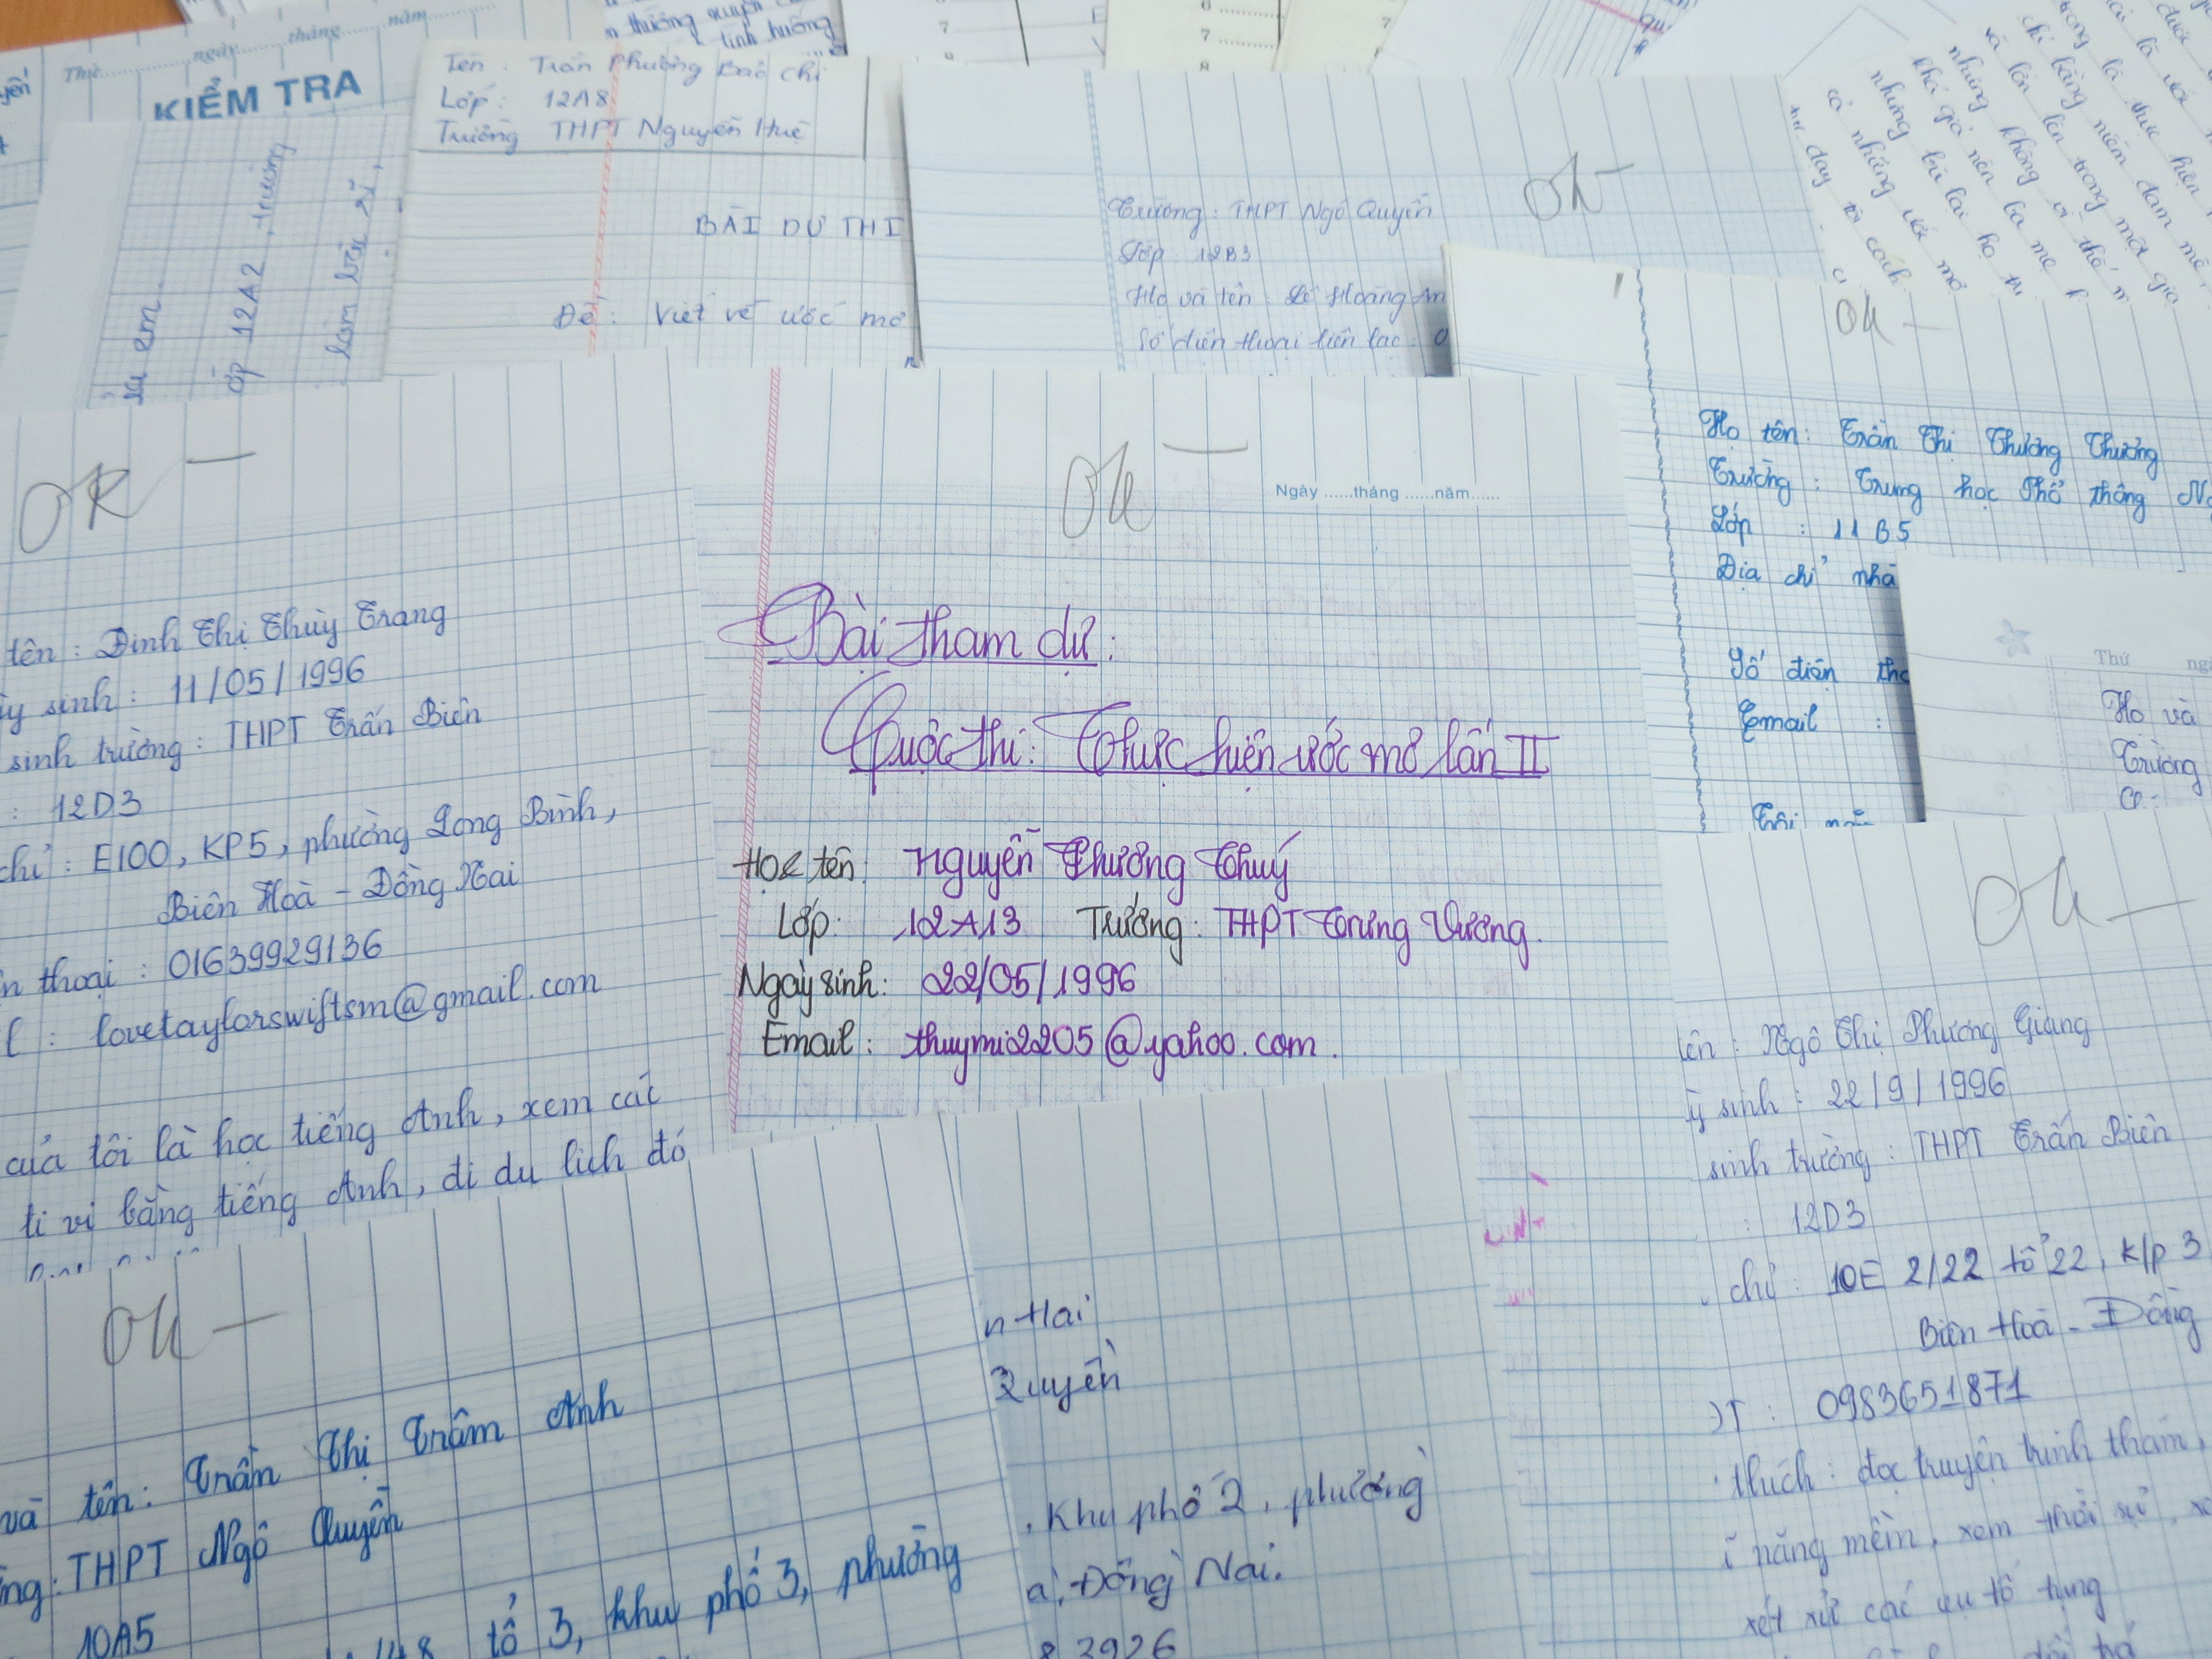 Thứ............ngày........tháng........năm........
KIỂM TRA
thường xuyên
tình huống
Tên : Trần Phương Bảo Chi
Lớp : 12A8
Trường THPT Nguyễn Huệ
BÀI DỰ THI
Đề : Viết về ước mơ
của em
12A2, trường
Trường : THPT Ngô Quyền
Lớp : 12B3
Họ và tên : Lê Hoàng An
Số điện thoại liên lạc : 0
OK
OK
Họ tên : Trần Thị Thương Thương
Trường : Trung học Phổ thông
Lớp : 11B5
Địa chỉ nhà
Số điện
Email :
Thứ
Họ và
Trường
OK
tên : Đinh Thị Thùy Trang
sinh : 11/05/1996
sinh trường : THPT Trấn Biên
: 12D3
chỉ : E100, KP5, phường Long Bình,
Biên Hoà - Đồng Nai
thoại : 01639929136
l : lovetaylorswiftsm@gmail.com
của tôi là học tiếng Anh, xem các
ti vi bằng tiếng Anh, đi du lịch đó
OK
Ngày ......tháng ......năm......
Bài tham dự :
Cuộc thi : Thực hiện ước mơ lần II
Họ & tên : Nguyễn Phương Thuý
Lớp : 12A13 Trường : THPT Trưng Vương.
Ngày sinh : 22/05/1996
Email : thuymi2205@yahoo.com.
OK
tên : Ngô Thị Phương Giang
sinh : 22/9/1996
sinh trường : THPT Trấn Biên
: 12D3
chỉ : 10E 2/22 tổ 22, k/p 3
Biên Hoà - Đồng
T : 0983651871
thích : đọc truyện trinh thám,
năng mềm, xem thời sự,
xét xử các vụ tố tụng
OK
và tên : Trần Thị Trâm Anh
ng : THPT Ngô Quyền
10A5
tổ 3, khu phố 3, phường
n Hai
Quyền
. Khu phố 2, phường
a, Đồng Nai.
8 3926